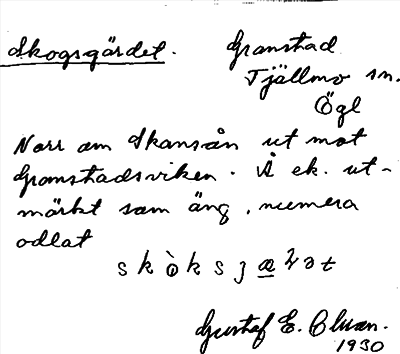 Skogsgärdet. Granstad
Tjällmo sn.
Ögl
Norr om Skansån ut mot
Granstadsviken. Å ek. ut-
märkt som äng, numera
odlat
Gustaf E.
1930